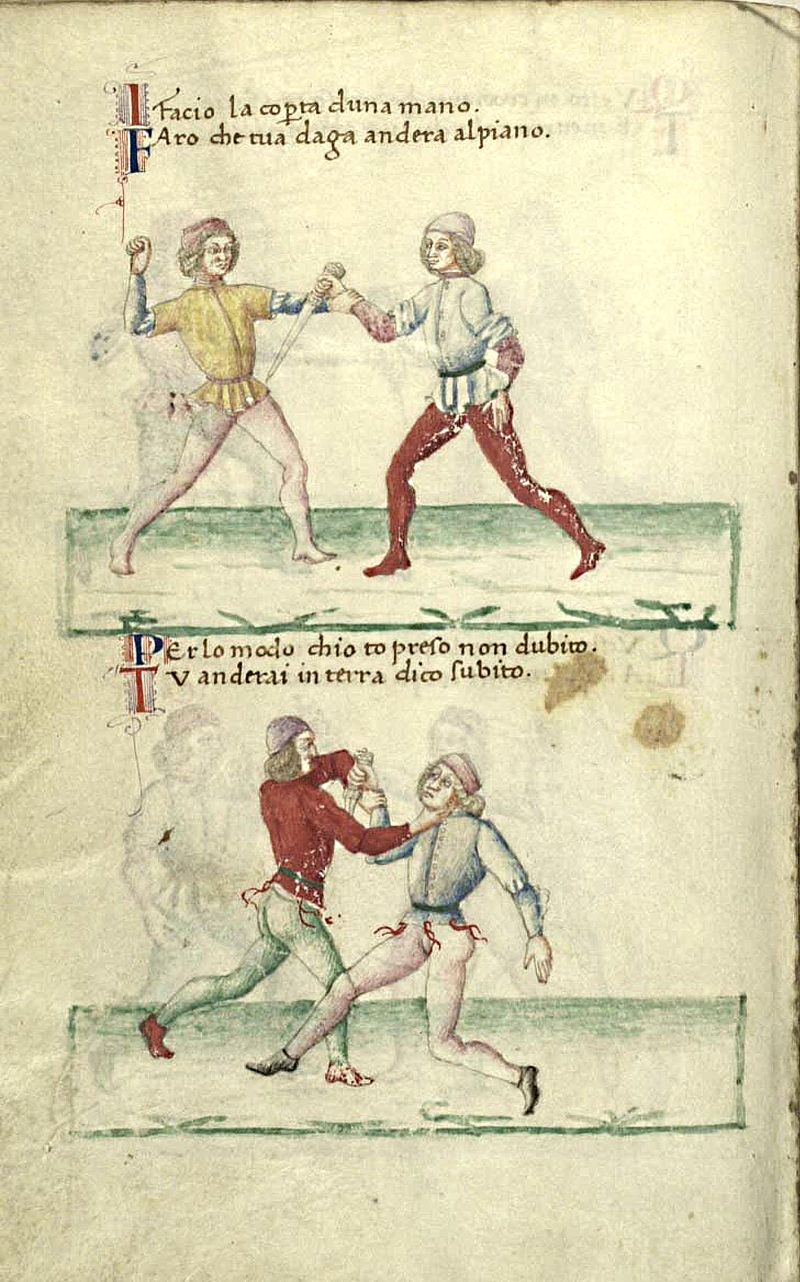 I facio la coperta duna mano.
FAro che tua daga andera alpiano.
PErlo modo chio to preso non dubito.
TV anderai in terra dico subito.